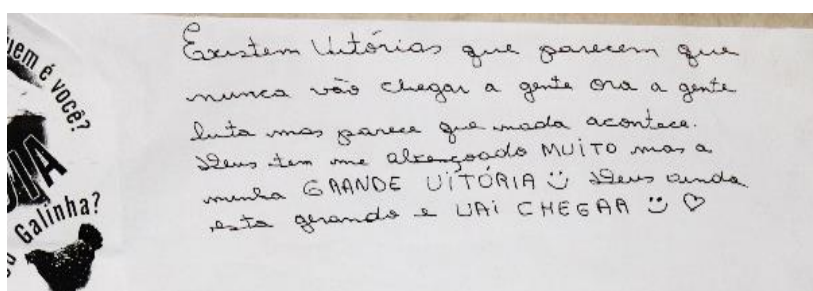 uem é você?
IA
Galinha?
Existem Vitórias que parecem que
nunca vão chegar a gente ora a gente
luta mas parece que nada acontece.
Deus tem me abençoado MUiTO mas a
minha GRANDE ViTÓRiA :) Deus ainda
esta gerando e VAi CHEGAR :) ♡